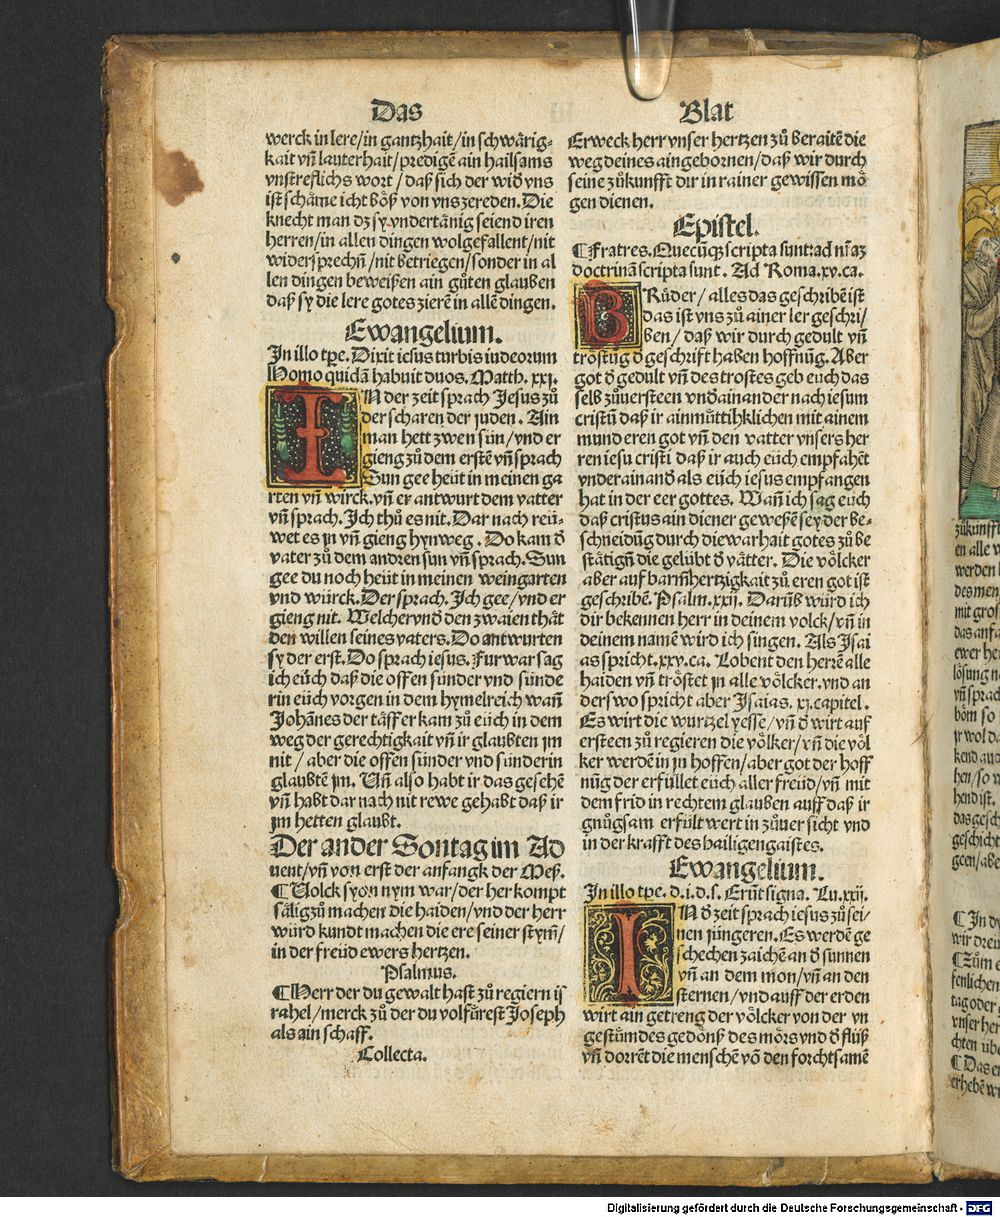 Das
werck in lere/in gantzhait/in schwårig-
kait vñ lauterhait/predigẽ ain hailsams
vnstreflichs wort/daß sich der wiď vns
ist schåme icht bőß von vns zereden. Die
knecht man dz sy vndertånig seiend iren
herren/in allen dingen wolgefallent/nit
widersprechñ/nit betriegen/sonder in al
len dingen beweißen ain gůten glauben
daß sy die lere gotes zierẽ in allẽ dingen.
Ewangelium.
In illo tpe. Dixit iesus turbis iudeorum
Homo quidã habuit duos. Matth. xxi.
IN der zeit sprach Jesus zů
der scharen der juden. Ain
man hett zwen sün/vnd er
gieng zů dem erstẽ vñ sprach
Sun gee heüt in meinen ga
rten vñ wirck. vñ er antwurt dem vatter
vñ sprach. Ich thů es nit. Dar nach reü-
wet es jn vñ gieng hynweg. Do kam ď
vater zů dem andren sun vñ sprach. Sun
gee du noch heüt in meinen weingarten
vnd würck. Der sprach. Ich gee/vnd er
gieng nit. Welcher vnď den zwaien thåt
den willen seines vaters. Do antwurten
sy der erst. Do sprach iesus. Furwar sag
ich eüch daß die offen sünder vnd sünde
rin eüch vorgen in dem hymelreich wañ
Johãnes der tåffer kam zů eüch in dem
weg der gerechtigkait vñ ir glaubten jm
nit/aber die offen sünder vnd sünderin
glaubtẽ jm. Uñ also habt ir das gesehẽ
vñ habt dar nach nit rewe gehabt daß ir
jm hetten glaubt.
Der ander Sontag im Ad
uent/vñ von erst der anfangk der Meß.
¶ Volck syon nym war/der her kompt
såligzů machen die haiden/vnd der herr
würd kundt machen die ere seiner stym̃/
in der freüd ewers hertzen.
Psalmus.
¶ Herr der du gewalt hast zů regiern is
rahel/merck zů der du volfůrest Joseph
als ain schaff.
Collecta.
Blat
Erweck herr vnser hertzen zů beraitẽ die
weg deines aingebornen/daß wir durch
seine zůkunfft dir in rainer gewissen mő
gen dienen.
Epistel.
¶ Fratres. Quecũqz scripta sunt: ad nr̃az
doctrinã scripta sunt. Ad Roma. xv. ca.
BRůder/alles das geschribẽ ist
das ist vns zů ainer ler geschri/
ben/daß wir durch gedult vñ
trőstũg ď geschrift haben hoffnũg. Aber
got ď gedult vñ des trostes geb euch das
selb zůuersteen vndainander nach iesum
cristũ daß ir ainmůttiklichen mit ainem
mund eren got vñ den vatter vnsers her
ren iesu cristi daß ir auch eüch empfahẽt
vnderainanď als eüch iesus empfangen
hat in der eer gottes. Wañ ich sag eüch
daß cristus ain diener geweßẽ sey der be-
schneidũg durch die warhait gotes zů be
ståtigñ die gelübt ď våtter. Die vőlcker
aber auf barm̃hertzigkait zů eren got ist
geschribẽ. Psalm. xxij. Darũb würd ich
dir bekennen herr in deinem volck/vñ in
deinem namẽ wird ich singen. Als Isai
as spricht. xxv. ca. Lobent den herrẽ alle
haiden vñ trőstet jn alle vőlcker. vnd an
derswo spricht aber Isaias. xj. capitel.
Es wirt die wurtzel yesse/vñ ď wirt auf
ersteen zů regieren die vőlker/vñ die vől
ker werdẽ in jn hoffen/aber got der hoff
nũg der erfüllet eüch aller freüd/vñ mit
dem frid in rechtem glauben auff daß ir
gnůgsam erfült wert in zůuersicht vnd
in der krafft des hailigen gaistes.
Ewangelium.
In illo tpe. d. i. d. s. Erũt signa. Lu. xxij.
IN ď zeit sprach iesus zů sei/
nen jüngeren. Es werdẽ ge
schechen zaichẽ an ď sunnen
vñ an dem mon/vñ an den
sternen/vnd auff der erden
wirt ain getreng der vőlcker von der vn
gestům des gedőnß des mőrs vnd ď flüß
vñ dorrẽt die menschẽ vő den forchtsamẽ
zůkunfft
en alle
werden
des men
mit groß
das anfa
ewer he
lősung n
vñ sprach
bőm so
jr wol da
kend auc
hen/so
hend ist.
das gesch
geschicht
geen/abe
¶ In d
wir dreü
¶ Zům
fenlichen
tag oder
vnser her
chten übe
¶ Das e
erhebẽ w
Digitalisierung gefördert durch die Deutsche Forschungsgemeinschaft - DFG